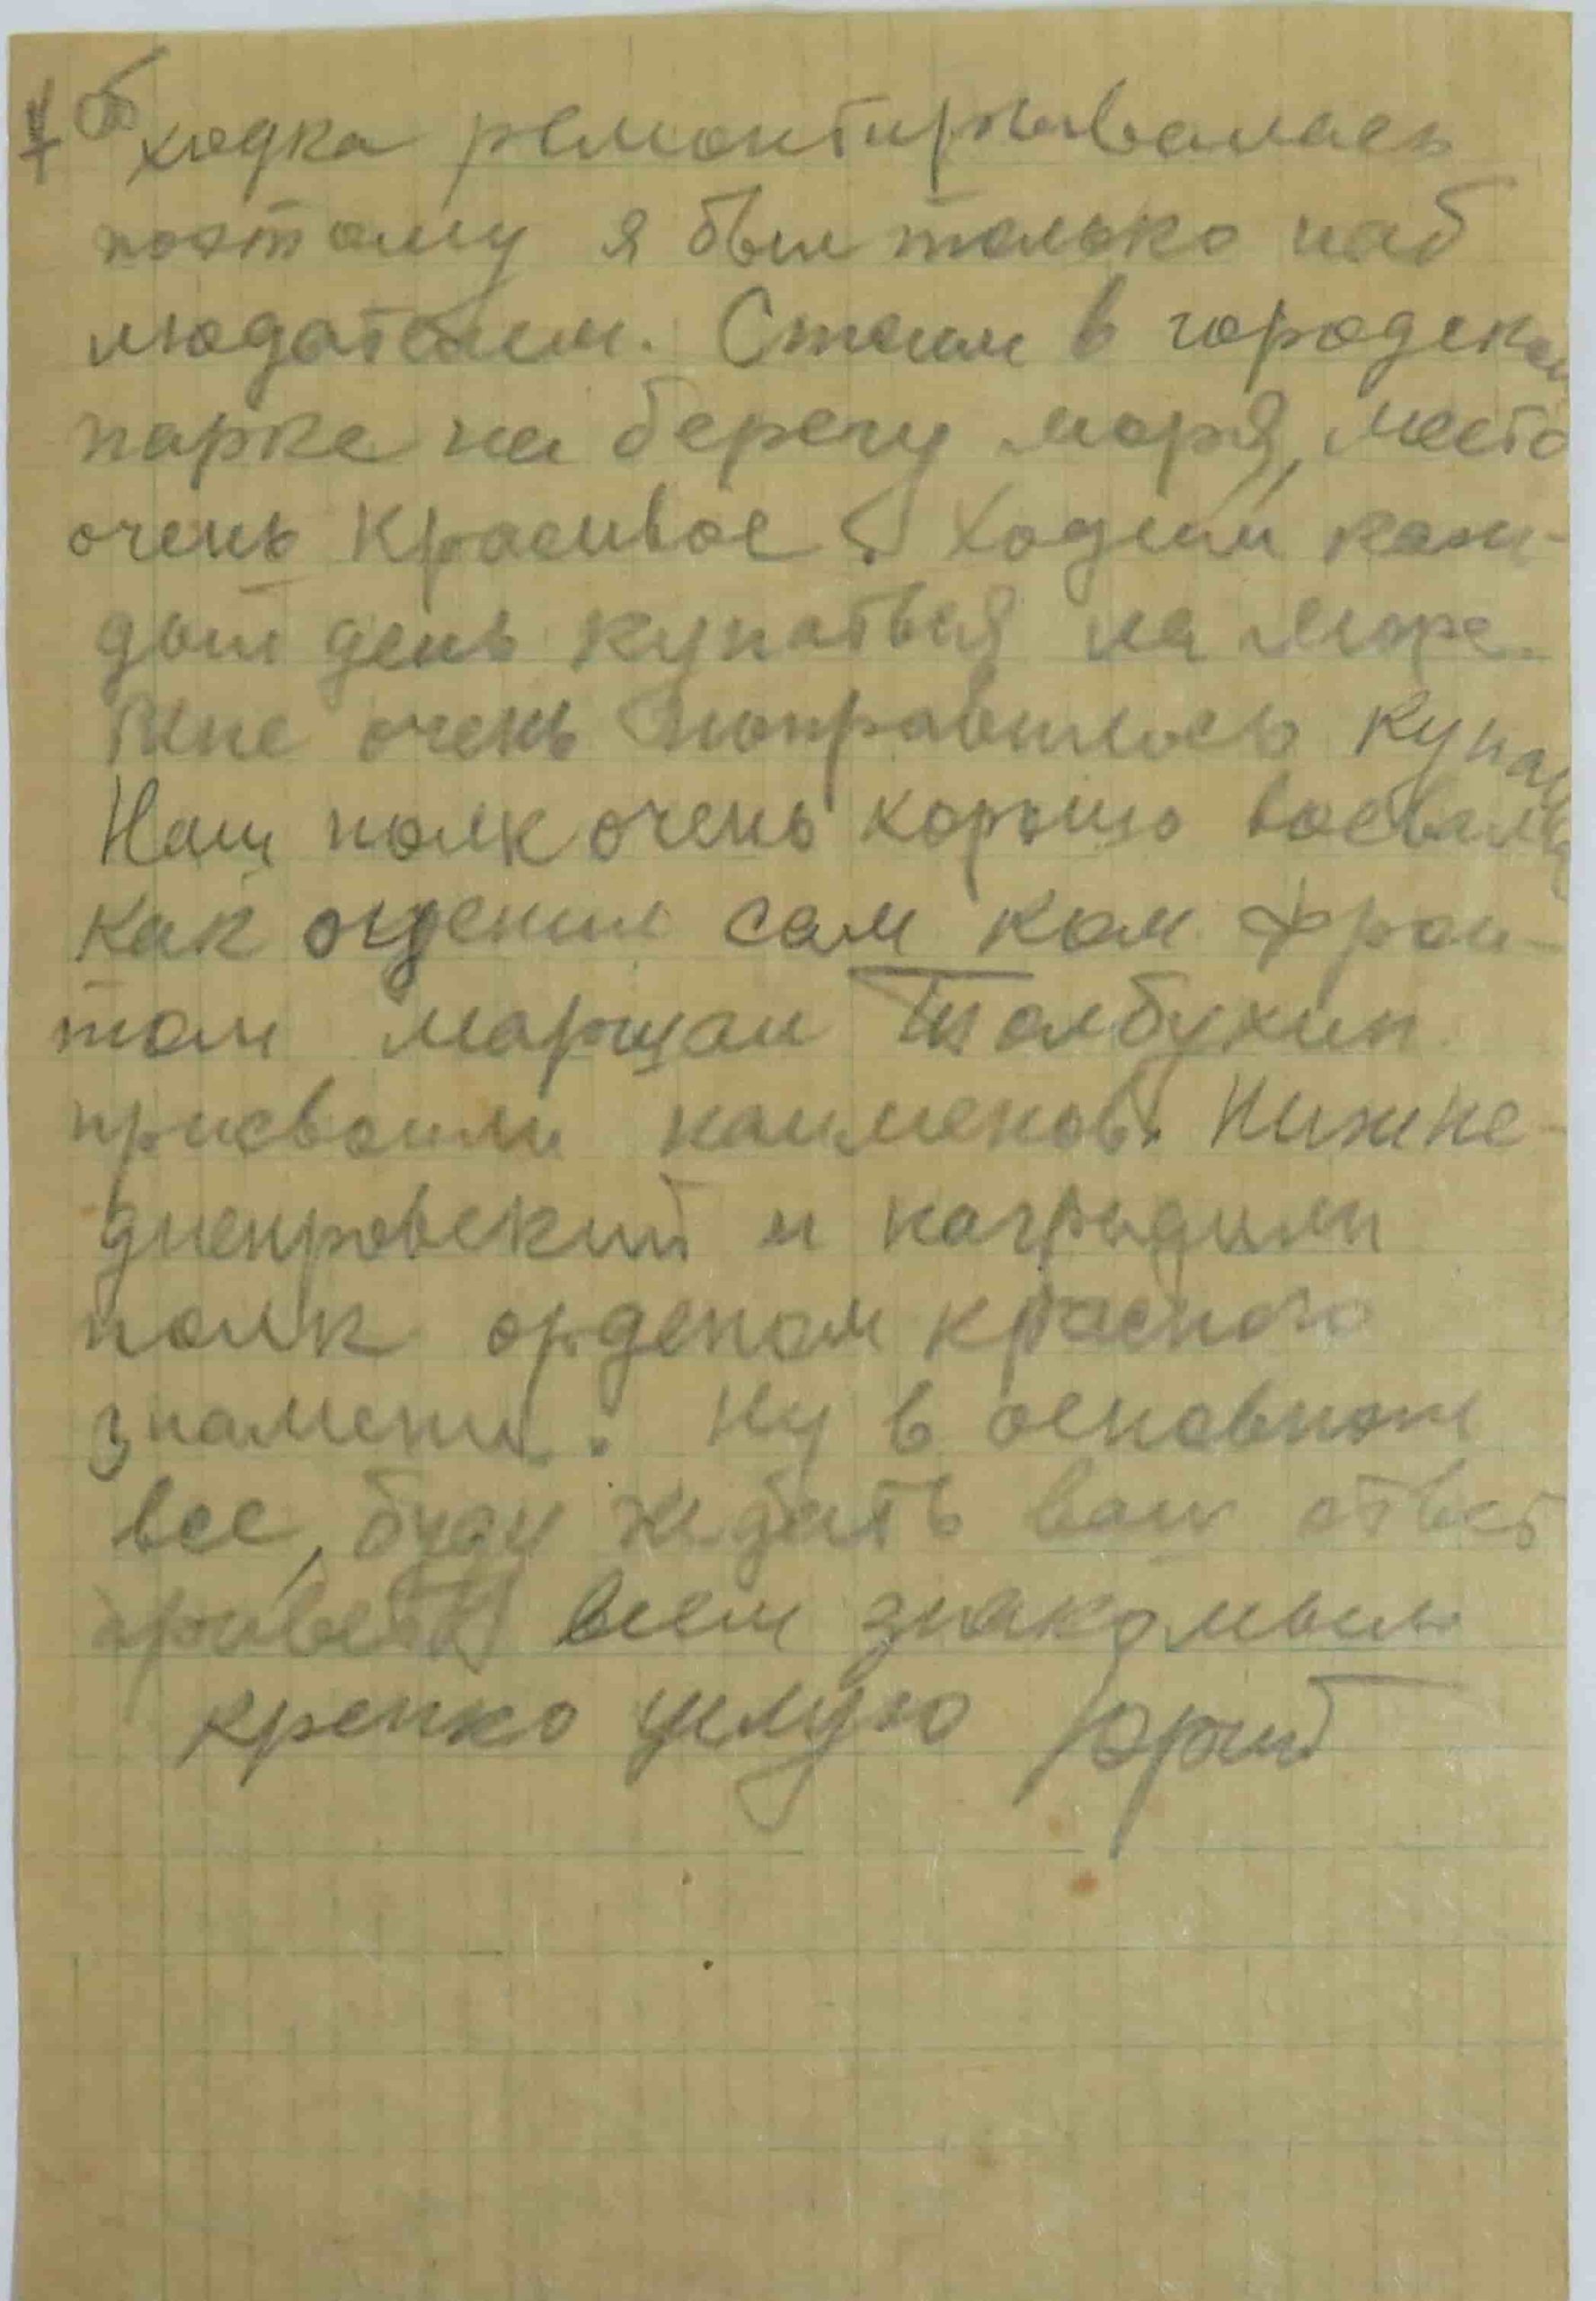 ходка ремонтировалась
поэтому я был только наб
людателем. Стоим в городском
парке на берегу моря, место
очень красивое. Ходим каж-
дый день купаться на море.
Мне очень понравилось
Наш полк очень хорошо воевал
как оценил сам ком фрон-
том маршал Толбухин
присвоили наименов. Нижне-
днепровский и наградили
полк орденом красного
знамени. Ну в основном
все, буду ждать ваш ответ
привет всем знакомым
крепко целую Юрий